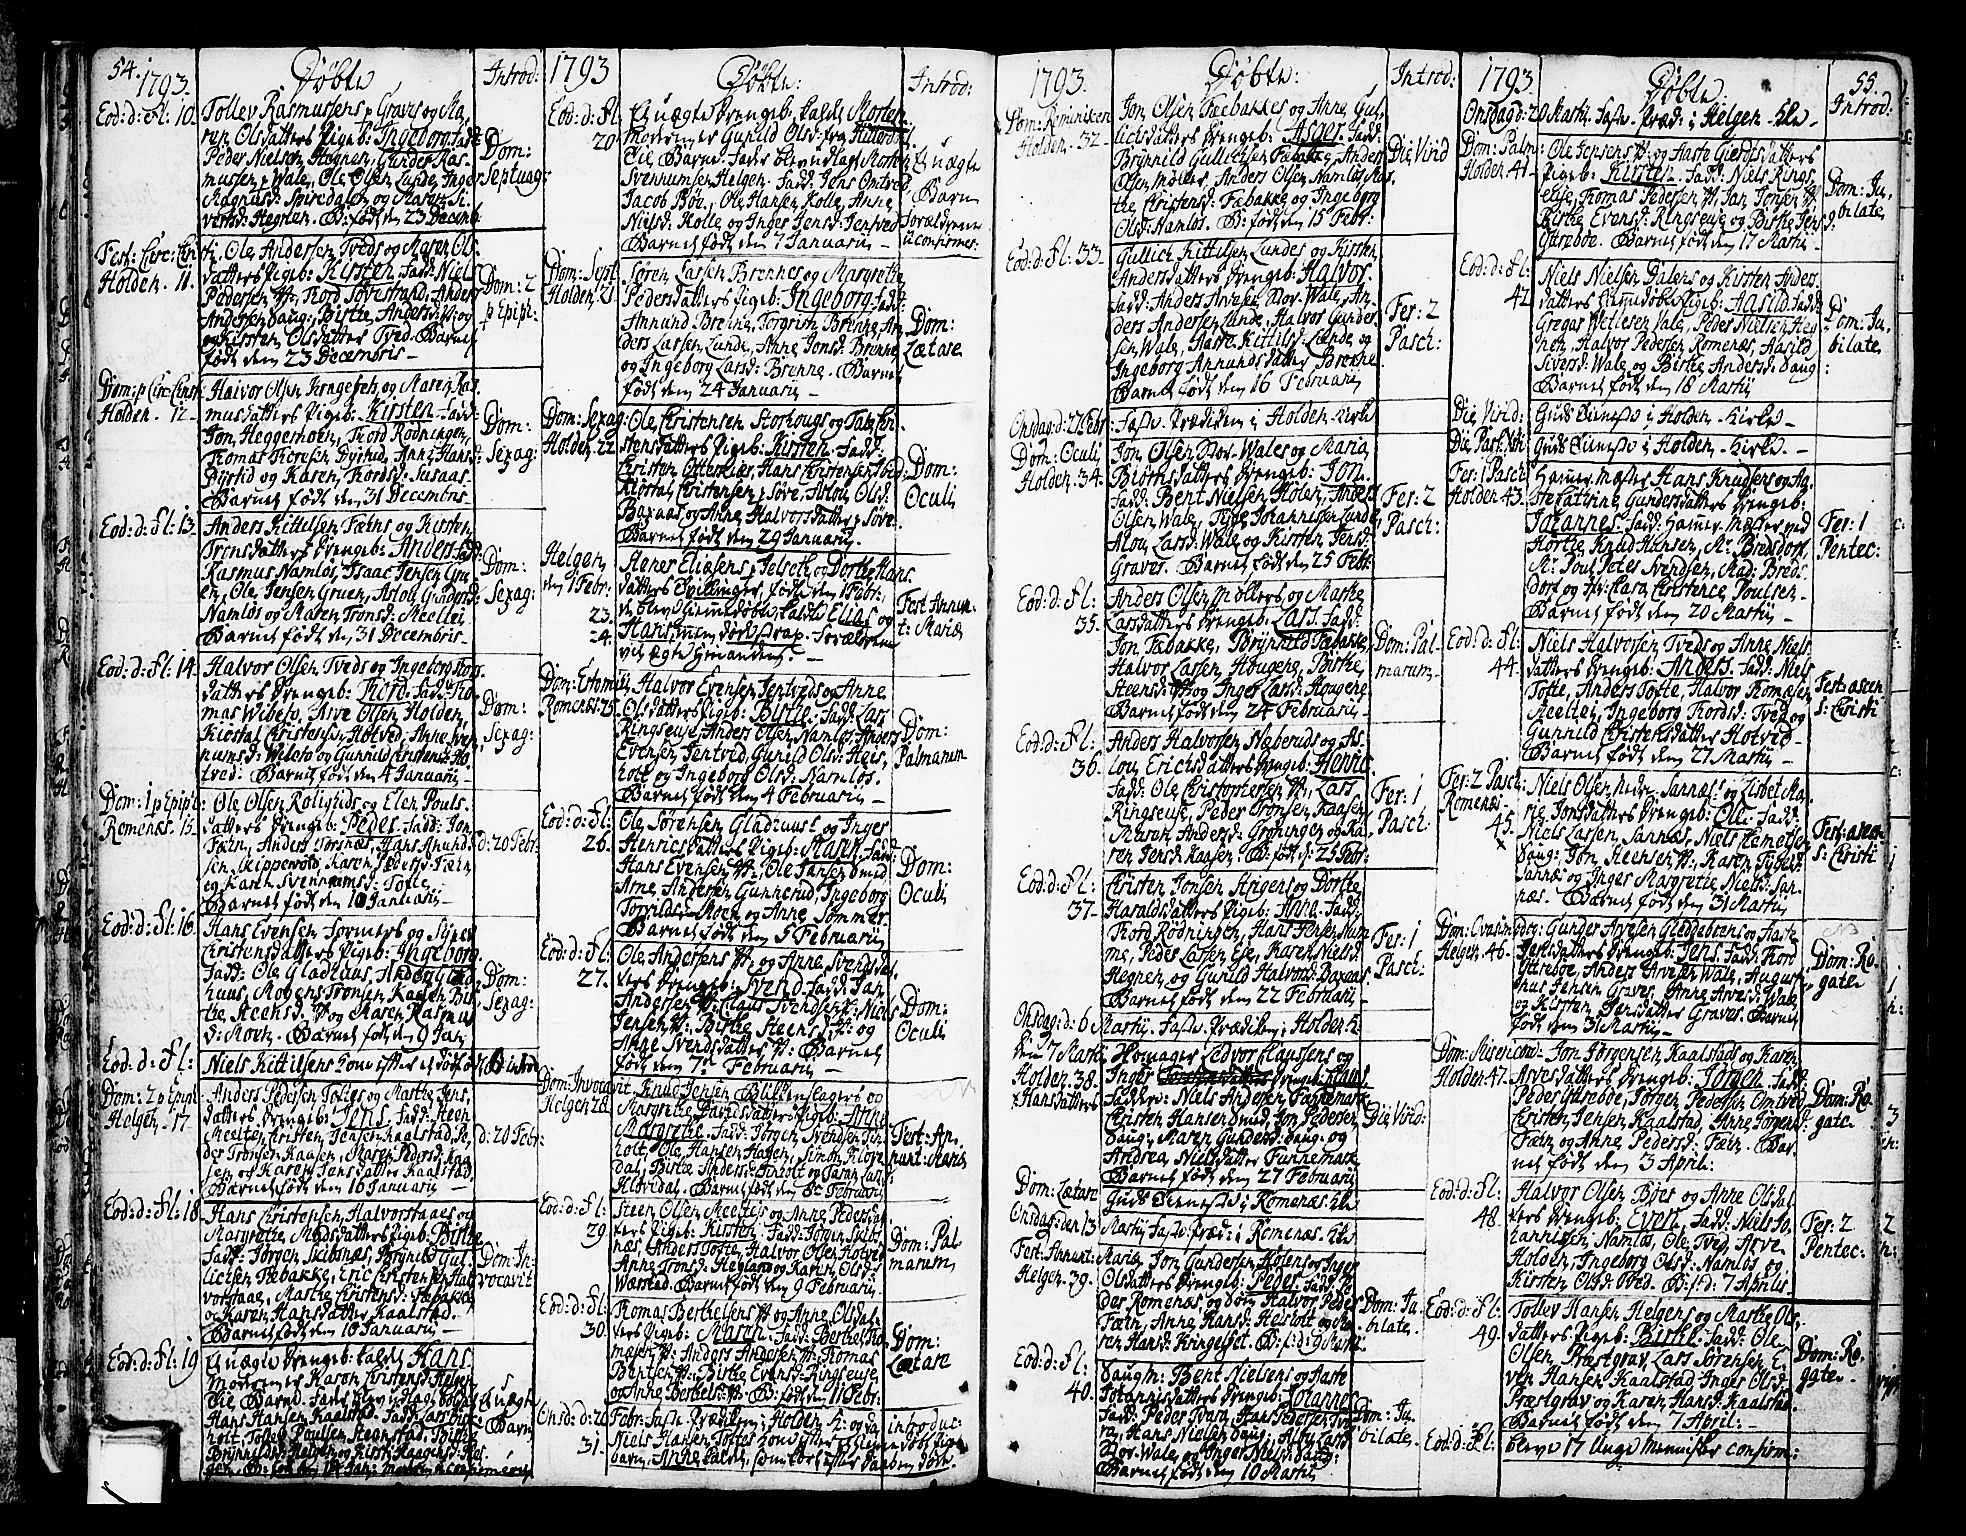 54. 1793. Døbte Introd:
Eod: d: Fl: 10.
Tollev Rasmussens p Graver og Ma-
ren Olsdatters Pigeb: Ingeborg Fadd:
Peder Nielsen Hegnen, Gunder Ras-
mussen p Wale, Ole Olsen Lunde, Inger
Magnusd: Spiredalen og Maren Si-
versd: Hegnen. B: født den 23 Decemb.
Dom:
Septuag:
Fest: Circ: Chri-
sti. Holden. 11.
Ole Andersen Tveds og Maren Ols-
datters Pigeb: Kirsten. Fadd: Niels
Pedersen Tord Tovestrand, Anders
Andersen Daug: Birthe Andersd: og
Kirsten Olsdatter Tved. Barnet
født den 23 Decembris
Dom: 2
p Epiph:
Dom: p Circ: Christi
Holden. 12
Halvor Olsen Tvedt og Maren Ras-
musdatters Pigeb: Kirsten. Fadd:
Jon Heggeshoen, Thord Rodningen,
Thomas Thoresen Dyrhud, Anne Hans
Dyrhud og Karen Thordsd: Susaas.
Barnet født den 31 Decembris
Dom:
Sexag:
Eod: d: Fl: 13.
Anders Kittilsen Færns og Kirsten
Tronsdatters Drengeb: Anders. Fadd:
Rasmus Namløs, Isaac Jensen Gru-
en, Ole Jensen Gruen, Aslou Gundersd:
Namløs og Maren Tronsd: Meeltei
Barnet født den 31 Decembris
Dom:
Sexag:
Eod: d: Fl: 14.
Halvor Olsen Tveds og Ingeborg Thors-
datters Drengeb: Thord. Fadd: Tho-
mas Wibeto, Arve Olsen Holden,
Kiostol Christensen Hotved, Anne Sven-
numsd: Wibeto og Gunnild Christensd: Ho-
tved: Barnet født den 4 Januarii
Dom:
Sexag:
Dom: 1 p Epiph:
Romenæs. 15.
Ole Olsen Rolighds og Elen Pouls-
datters Drengeb: Peder. Fadd: Jon
Færn, Anders Torsnæs, Hans Amund-
sen Skippevold, Karen Pedersd: Færn
og Karen Svennumsd: Tofte.
Barnet født den 10 Januarii
d: 20 Febr:
Eod: d: Fl: 16.
Hans Evensen Formers og Sissel
Christensdatters Pigeb: Ingeborg.
Fadd: Ole Gladhuus, Anders Glad-
huus, Mogens Tronsen Kaasen Bir-
the Steensd: og Karen Rasmus-
d: Moen. Barnet født den 9 Jan
Dom:
Sexag:
Eod: d: Fl:
Niels Kittilsens Kone efter et dødfødt B: introd:
Dom: 2 p Epiph
Helgen. 17
Anders Pedersen Toftes og Marthe Jens-
datters Drengeb: Jens. Fadd: Steen
Meeltei, Christen Jensen Kaalstad, Pe-
der Tronsen Kaasen, Maren Pedersd: Kaa-
sen og Karen Jensdatter Kaalstad.
Barnet født den 16 Januarii
d: 20 Febr:
Eod: d: Fl: 18.
Hans Christensen Halvorstaaes og
Margrethe Madsdatters Pigeb: Birthe
Fadd: Jørgen Skibsnæs, Brynild Gul-
lichsen Fæbakke, Eric Christensen Hal-
vorstaae, Marthe Christensd: Fæbakke
og Karen Hansdatter Kaalstad.
Barnet født den 10 Januarii
Dom: In-
vocavit
Eod: d: Fl: 19
Et uægte Drengeb: kaldt Hans.
Moderen er Karen Christensd: Helgen
Eie Barnef: Fader blev udlagt
Hans Hansen Kaalstad. Fadd: Lars
holt, Tollev Poulsen Steenstad, Birthe
Et uægte
Barn

1793 Døbte: Introd:
Eod: d: Fl:
20.
Et uægte Drengeb: kaldt Morten.
Moderen er Gunild Olsd: fra
Eie Barnef: Fader blev udlagt Morten
Svennumsen Helgen. Fadd: Jens Omtved
Jacob Bøe, Ole Hansen Kolle, Anne
Nielsd: Kolle og Inger Jensd: Jentved
Barnet født den 7 Januarii
Et uægte
Barn
Forældrene
u confirmer:
Dom: Sept:
Holden. 21.
Søren Larsen Brennes og Margrethe
Pedersdatters Pigeb: Ingeborg Fadd:
Amund Brenne, Torgrim Brenne, An-
ders Larsen Lunde, Anne Jonsd: Brenne
og Ingeborg Larsd: Brenne. Barnet
født den 24 Januarii
Dom:
Lætare
Dom: Sexag:
Holden. 22.
Ole Christensen Storhougs og Taleen Chri-
stensdatters Pigeb: Kirsten. Fadd:
Christen Otterkiær, Hans Christensen
Kiostol Christensen p Sove, Aslou Olsd:
Baxaas og Anne Halvorsdatter p Sove.
Barnet født den 29 Januarii
Dom:
Oculi
Helgen
den 1 Febr:
23.
24.
Hones Eliæsens p Jelseth og Dorthe Hans-
datters Tvillinger, fødte den 1 Febr:
de blev hiemmedøbte, kaldt Elias og
Hans, men døde strax. Forældrene
vel ægte hinanden.
Fest Annun-
t: Mariæ
Dom: Estomihi
Romenæs. 25
Halvor Evensen Jentveds og Anne
Olsdatters Pigeb: Birthe. Fadd: Lars
Ringseuse, Anders Olsen Namløs, Anders
Evensen Jentved, Gunild Olsd: Heis-
holt og Ingeborg Olsd: Namløs.
Barnet født den 4 Februarii
Dom:
Palmarum
Eod: d: Fl:
26.
Ole Sørensen Gladhuus og Inger
Henricsdatters Pigeb: Maren. Fadd:
Hans Evensen Ole Jansen Smed
Arne Andersen Gunnerud, Ingeborg
Torrildsd: Moen og Anne Sommer
Barnet født den 5 Februarii
Dom:
Oculi
Eod: d: Fl:
27.
Ole Andersens og Anne Svendsdat-
ters Drengeb: Svend. Fadd: Jan
Andersen Claus Svendsen Niels
Jensen Birthe Steensd: og
Anne Svendsdatter Barnet
født den 7de Februarii
Dom:
Oculi
Dom: Invocavit
Helgen 28.
Knud Jensen Blikkenslagers og
Margrethe Davidsdatters Pigeb: Anne
Margrethe. Fadd: Jørgen Svendsen Jen-
holt, Ole Hansen Hagen, Simon Klove-
dal, Birthe Andersd: Jenholt og Sarah Lars-
Klovedal. Barnet født den 8de Februarii
Fest: An-
nunt: Mariæ
Eod: d: Fl:
29.
Steen Olsen Meelteies og Anne Pedersdat-
ters Pigeb: Kirsten. Fadd: Jørgen Skibs-
næs, Anders Tofte, Halvor Olsen Hotved
Anne Tronsd: Hegland og Karen Olsd:
Warstad. Barnet født den 9 Februarii
Dom: Pal-
marum
Eod: d: Fl:
30.
Thomas Berthelsens og Anne Olsdat-
ters Pigeb: Maren. Fadd: Berthel Tho-
mæsen Anders Andersen Thomas
Bentsen Birthe Evensd: Ringseuse
og Anne Berthelsd: B: født den 11 Febr:
Dom:
Lætare
Onsd: d: 20
31.
Febr: Faste Prædiken i Holden K: og
Niels Hansen Toftes Kone efter et Pige-
barn, Anne kaldt, som døde efter Daaben døde.
introduc:

1793. Døbte: Introd:
Dom: Reminiscere
Holden. 32.
Jon Olsen Fæbakkes og Anne Gul-
lichsdatters Drengeb: Asger. Fadd:
Brynnild Gullichsen Fæbakke, Anders
Olsen Moller, Anders Olsen Namløs Mar-
the Christensd: Fæbakke og Ingeborg
Olsd: Namløs. B: født den 15 Febr:
Die Virid
Eod: d: Fl: 33.
Gullich Kittilsen Lundes og Kirsten
Andersdatters Drengeb: Halvor.
Fadd: Anders Arvesen Nor-Wale, An-
ders Andersen Lunde, Halvor Gunder-
sen Wale, Aaste Kittilsd: Lunde og
Ingeborg Annundsdatter Brenne
Barnet født den 16 Februarii
Fer: 2
Pasch:
Onsdag d: 27 Febr:
Faste Prædiken i Holden Kirke
Dom: Oculi
Holden. 34.
Jon Olsen Nor-Wales og Maria
Biørnsdatters Drengeb: Jon.
Fadd: Bent Nielsen Holen, Anders
Olsen Wale, Tyge Johannissen Lunde,
Alou Larsd: Wale og Kirsten Jensd:
Graver. Barnet født den 25 Febr:
Fer: 2
Pasch:
Eod: d: Fl:
35.
Anders Olsen Mollers og Marthe
Larsdatters Drengeb: Lars. Fadd:
Jon Fæbakke, Brynnild Fæbakke,
Halvor Larsen Hougene, Birthe
Steensd: og Inger Larsd: Hougene
Barnet født den 24 Februarii
Dom: Pal-
marum
Eod: d: Fl:
36.
Anders Halvorsen Næseruds og As-
lou Erichsdatters Drengeb: Henric.
Fadd: Ole Christophersen Lars
Ringseuse, Peder Tronsen Kaasen
Maren Andersd: Groningen og Ka-
ren Jensd: Kaasen. B: født d: 25 Febr:
Fer: 1
Pasch:
Eod: d: Fl:
37.
Christen Jonsen Stigens og Dorthe
Haraldsdatters Pigeb: Anne. Fadd:
Thord Rødningen, Hans Jensen Mum-
me, Peder Larsen Eie, Karen Nielsd:
Hegnen og Gunild Halvorsd: Baxaas.
Barnet født den 22 Februarii
Fer: 1
Pasch:
Onsdag: d: 6 Martii. Faste Prædiken i Holden K:
den 7 Martii
Holden. 38.
x Hansdatters
Homager Ledvor Claussens og
Inger Drengeb: Hans
Faddere: Niels Andersen Funnemark
Christen Hansen Smud, Jon Pedersen
Daug: Maren Gundersd: Daug: og
Andrea Nielsdatter Funnemark
Barnet født den 27 Februarii
Die Virid:
Dom: Lætare
Guds Tieneste i Romenæs: K:
Onsdag: den 13 Martii Faste Præd: i Romenæs. K:
Fest: Annunt: Mariæ
Helgen. 39.
Jon Gundersen Holens og Inger
Olsdatters Drengeb: Peder. Fadd: Pe-
der Romenæs, og Søn Halvor Peders-
Færn, Anne Hansd: Heisholt og Ma-
ren Hansd: Kringelhot. B: f: d: 9 Martii
Dom: Ju-
bilate.
Eod: d: Fl:
40.
Daugh: Bent Nielsens og
Johannisdatters Drengeb: Johannes
Fadd: Peder Tvara, Hans Pedersen Tva-
ra, Hans Nielsen Daug: Alhu Larsd:
Nor-Wale og Inger Nielsd: Daug:
Barnet født den 10 Martii
Dom: Ju-
bilate.

1793. Døbte: 55. Introd:
Onsdag d: 20 Martii. Faste Præd: i Helgen K:
Dom: Palm
Holden. 41.
Ole Jepsens og Aaste Giertsdatters
Pigeb: Kirsten. Fadd: Niels Rings-
euse, Thomas Pedersen Jan Jonsen
Birthe Evensd: Ringseuse og Birthe Jen-
Ytterbøe. Barnet født den 17 Martii
Dom: Ju-
bilate.
Eod: d: Fl:
42.
Niels Nielsen Dalens og Kirsten Anders-
datters hiemdøbte Pigeb: Aasild Fadd:
Gregas Wetlesen Vale, Peder Nielsen Heg-
nen, Halvor Pedersen Romenæs, Aasild
Siversd: Wale og Birthe Andersd: Daug
Barnet født den 18 Martii
Dom: Ju-
bilate
Die Virid:
Guds Tieneste i Holden Kirke
Die Parasceve:
Guds Tieneste i Holden Kirke.
Fer: 1 Pasch
Holden 43.
Hamer-Mester Hans Knudsens og Aa-
ste Catrine Gundersdatters Drengeb:
Johannes. Fadd: Hamer-Mester ved
Hørthe Knud Hansen, Mr. Bredsdorf,
Mr. Poul Potes Svendsen, Mad: Breds-
dorf og Jfr: Clara Christence Poulsen.
Barnet født den 20 Martii
Fer: 1
Pentec:
Eod: d: Fl:
44.
Niels Halvorsen Tveds og Anne Niels-
datters Drengeb: Anders. Fadd: Niels
Tofte, Anders Tofte, Halvor Thomæsen
Meeltei, Ingeborg Thordsd: Tved og
Gunnild Christensdatter Hotved
Barnet født den 27 Martii
Fest: ascen
s: Christi
Fer: 2 Pasch
Romenæs
45.
x
Niels Olsen nedre Sannæs og Lisbet Ma-
rie Jonsdatters Drengeb: Ole. Fadd:
Niels Larsen Sannæs, Niels Clemetsen
Daug: Jon Steensen Karen Tygesd:
Sannæs og Inger Margrethe Nielsd: San-
næs. Barnet født den 31 Martii
Fest: ascen
s: Christi
Dom: Qvasimodog:
Helgen 46.
Gunder Arvesen Gleddebrens og Marthe
Jensdatters Drengeb: Jens. Fadd: Thord
Ytterbøe, Anders Arvesen Wale, August-
inus Jensen Graver, Anne Arvesd: Wale
og Kirsten Jensdatter Graver. Barnet
født den 31 Martii
NB
Dom: Ro-
gate
Dom: Misericord:
Holden 47.
Jon Jørgensen Kaalstads og Karen
Arvesdatters Drengeb: Jørgen. Fadd:
Peder Ytterbøe, Jørgen Pedersen Omtved
Christen Jensen Kaalstad, Anne Jørgensd:
Færn og Anne Pedersd: Færn. Bar-
net født den 3 April:
Dom: Ro-
gate
Eod: d: Fl:
48.
Halvor Olsen Bøes og Anne Olsdat-
ters Drengeb: Even. Fadd: Niels Jo-
hannissen Namløs, Ole Tved, Arve
Holden, Ingeborg Olsd: Namløs og
Kirsten Olsd: Tved. B: f: d: 7 Aprilis
Fer: 2
Pentec:
Eod: d: Fl:
49.
Tollev Hansen Helgens og Marthe Ols-
datters Pigeb: Birthe. Fadd: Ole
Olsen Præstgrav, Lars Sørensen E-
ven Hansen Kaalstad, Inger Olsd:
Præstgrav og Karen Hansd: Kaalstad.
Barnet født den 7 April:
Dom: Ro-
gate
Eod: d: Fl:
bleve 17 Unge Mennisker confirm: